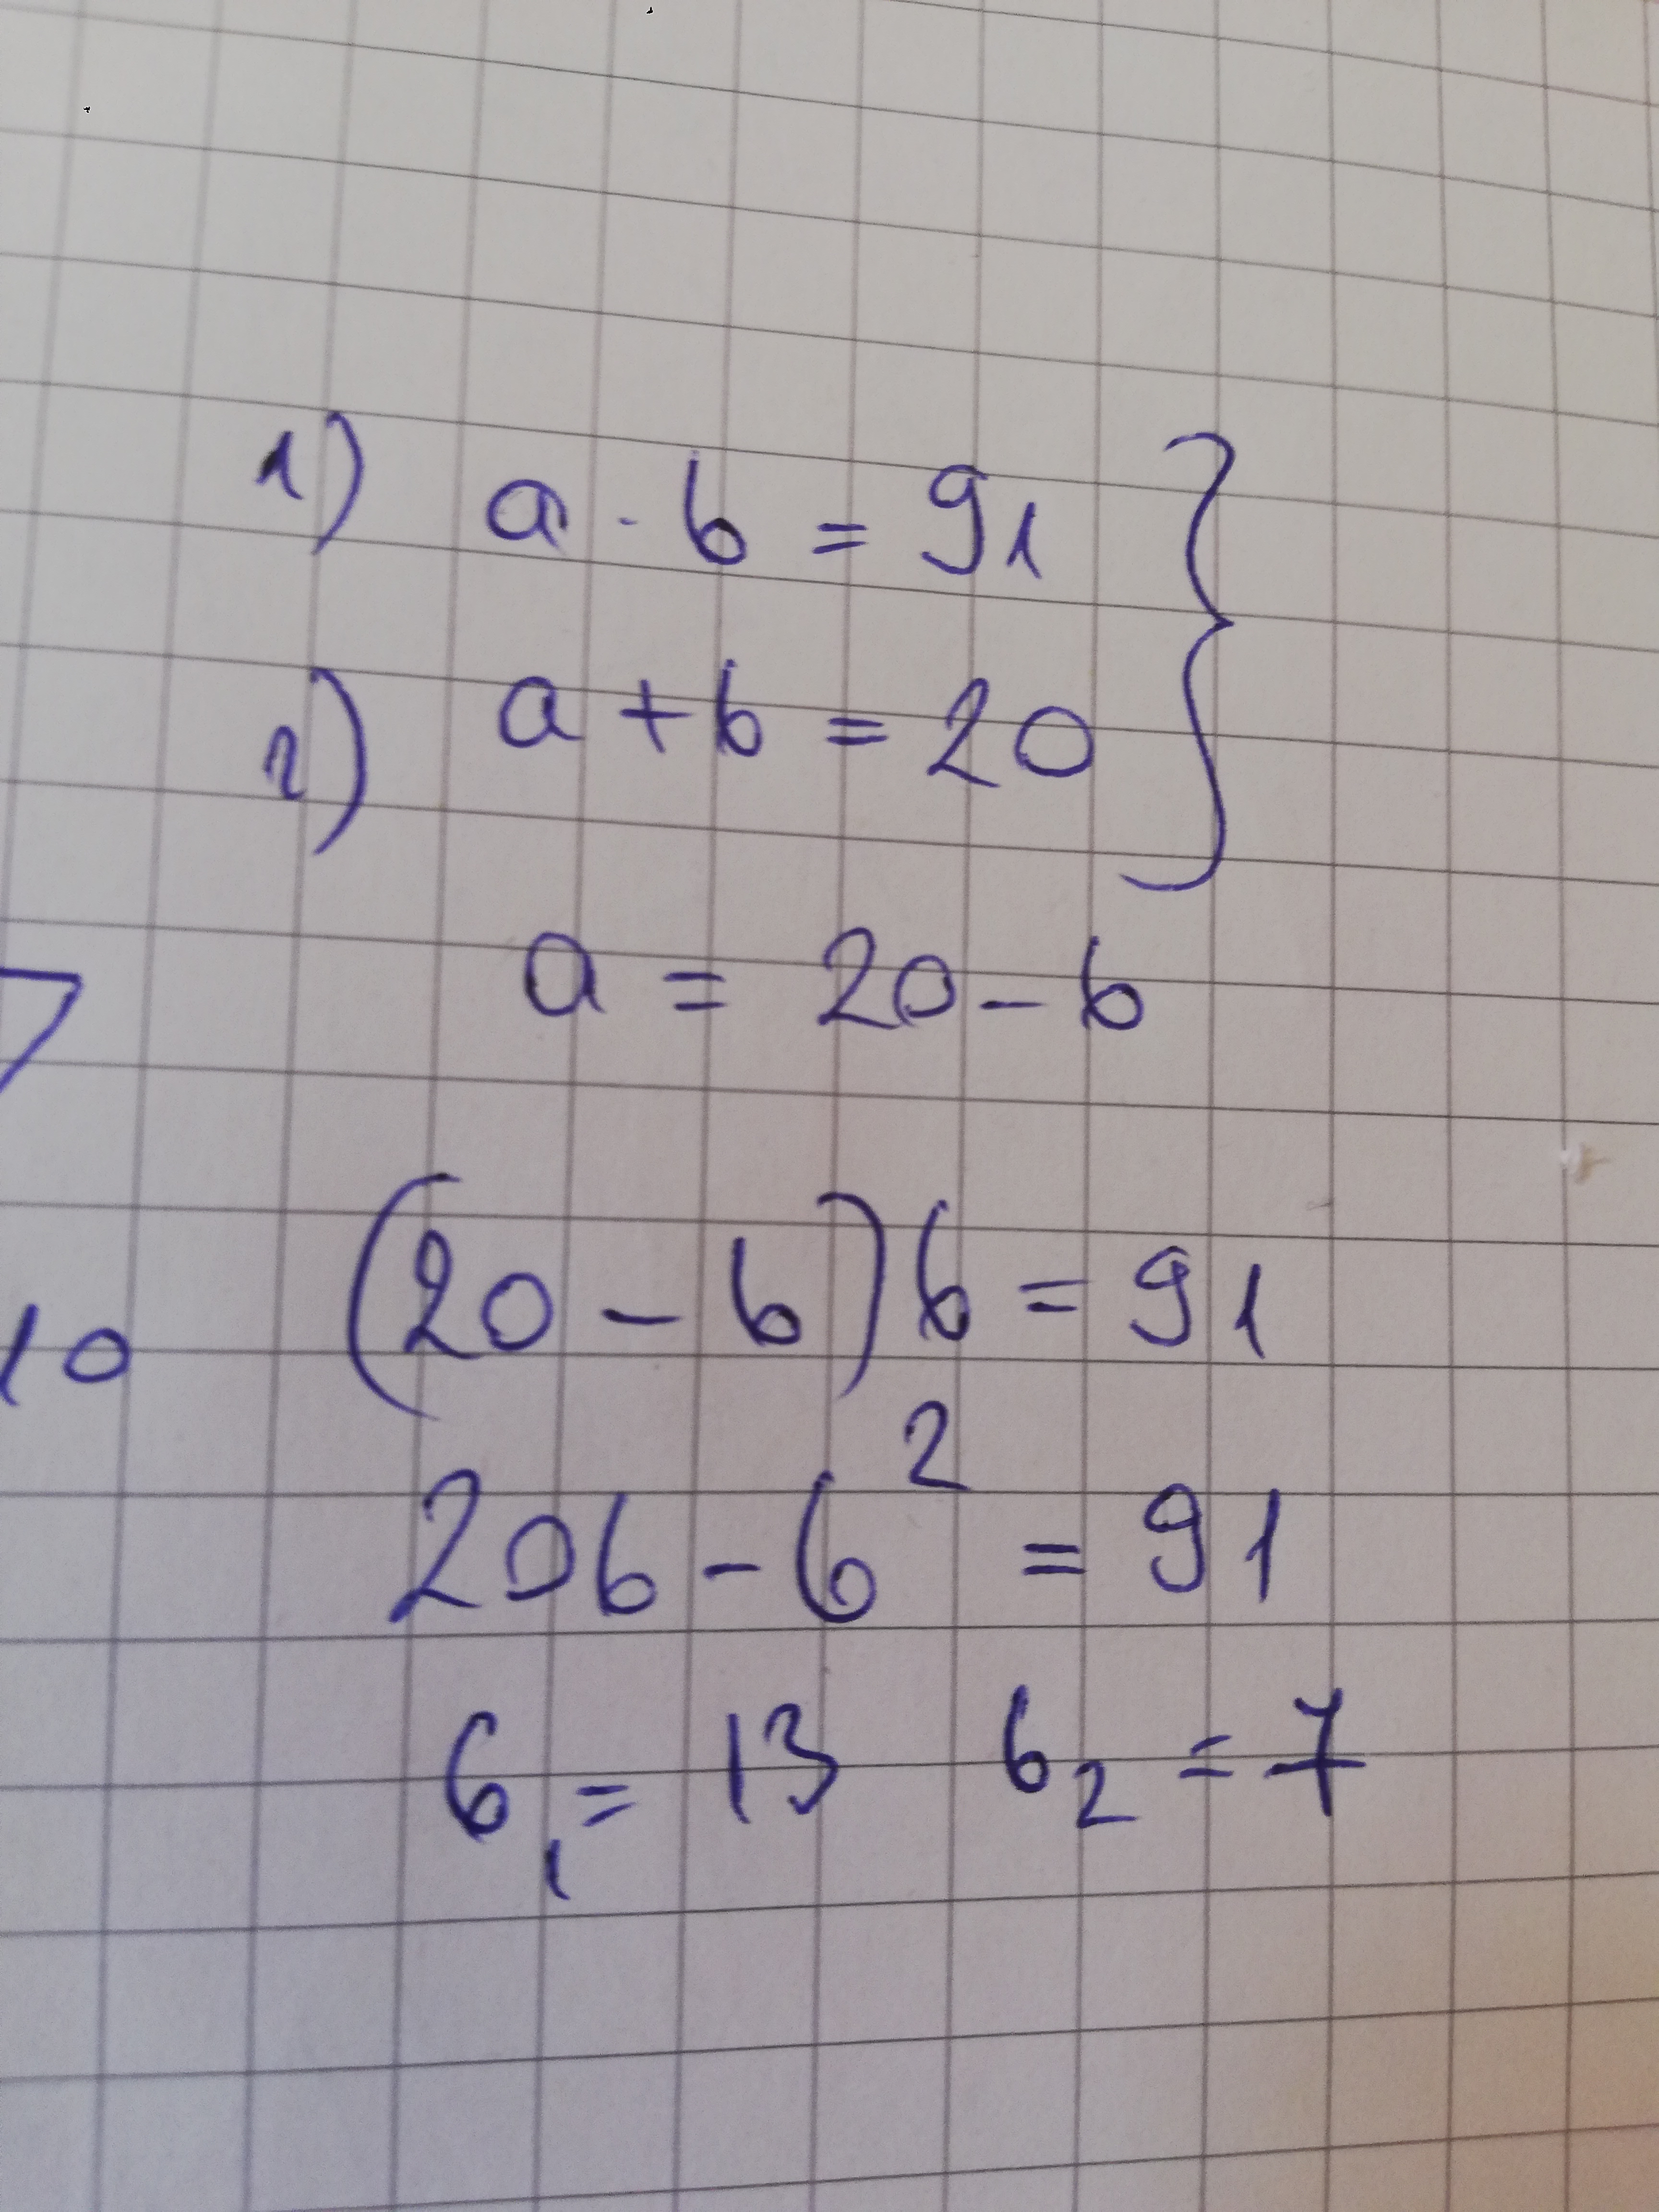 1) a · b = 91 }
2) a + b = 20
a = 20 - b
7
(20 - b) b = 91
10
20b - b² = 91
b₁ = 13 b₂ = 7